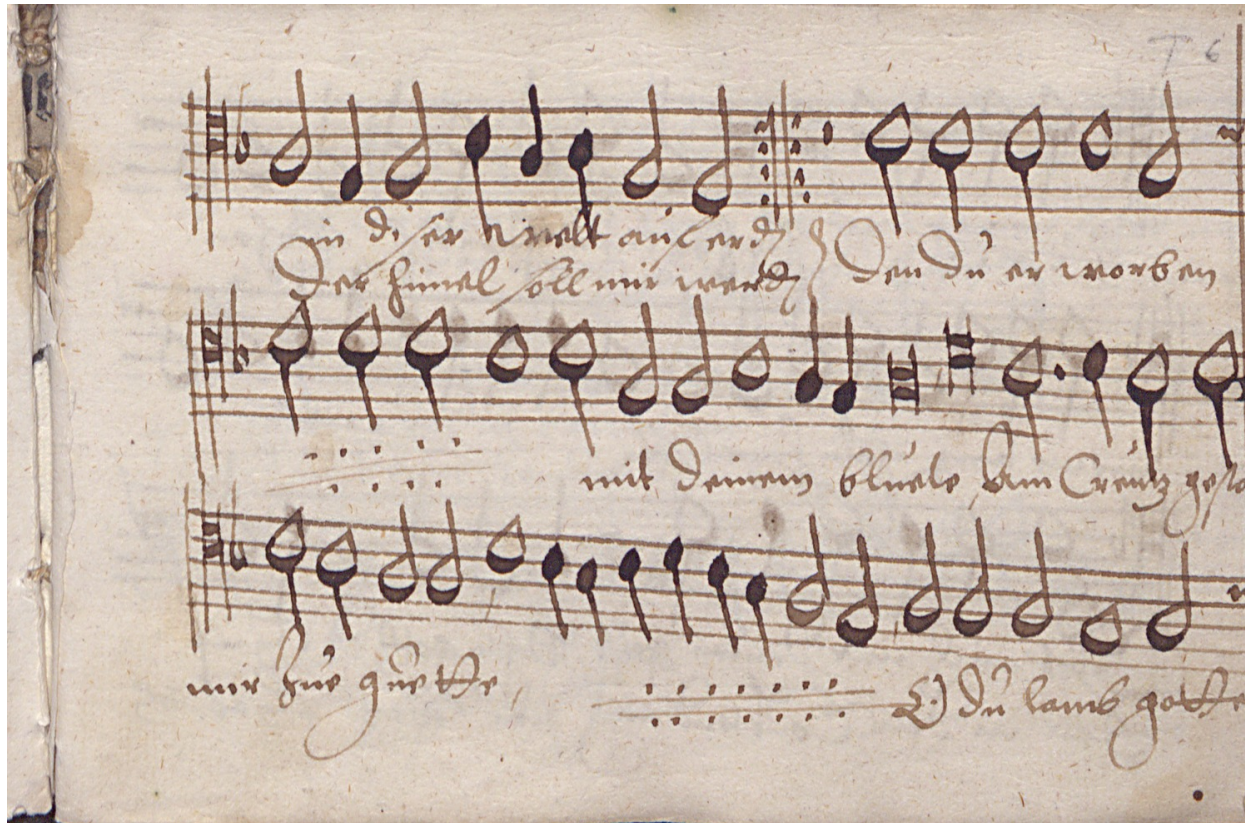 T 6
in diser welt auf erdn
Der himel soll mir werdn Den dů er worben
mit deinem bluete, Am Creutz gesto
mir zue guette, O dů lamb gotte